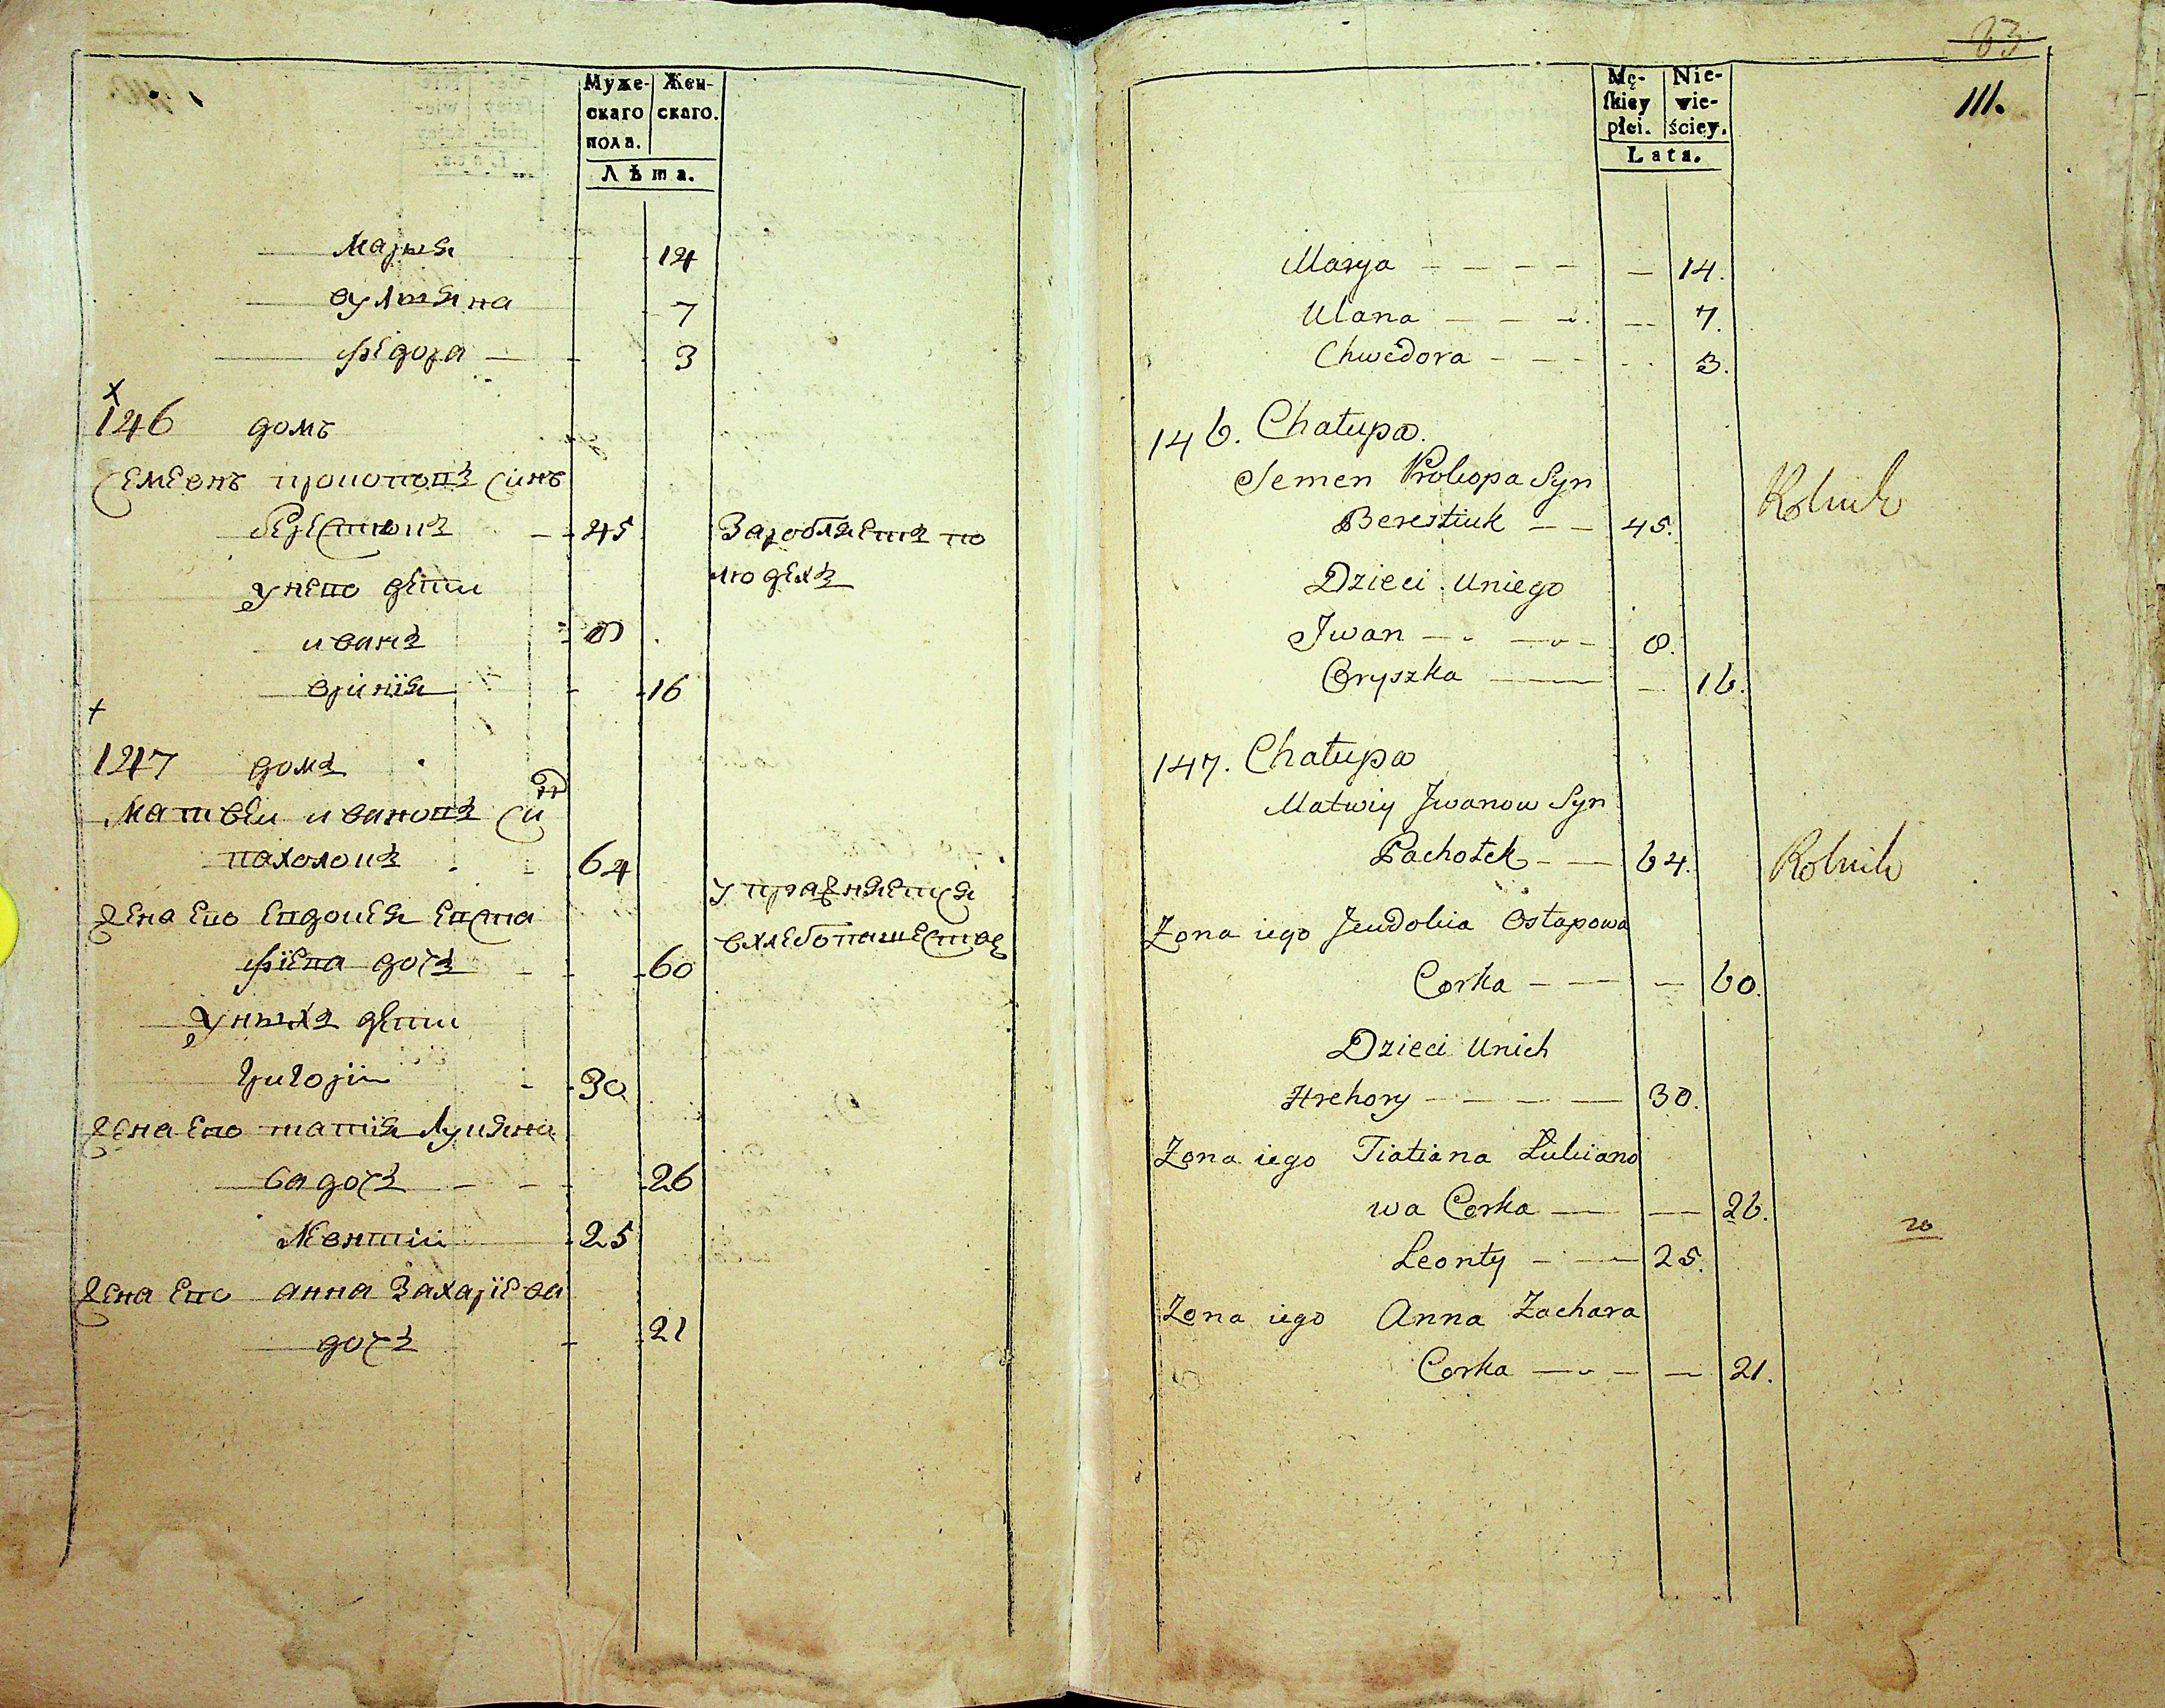 Муже-
скаго
пола.
Жен-
скаго.
Лѣта.
Марыя 14
вулыяна 7
федора 3
х
146 домъ
Семенъ прокопавъ синъ
берестюкъ 45 Заробляетъ по
людехъ
у него дети
иванъ 8
оринїя 16
+
147 домъ
Матвѣи ивановъ синъ
пахолокъ 64
упражняется
жена его евдокея евста
вхлебопашестве
фїева дочъ 60
у ныхъ дети
григорїи 30
жена его татїя лукяно
ва дочъ 26
леонтїи 25
жена его анна Захарїева
дочъ 21
83
111.
Mę-
ſkiey
płci.
Nie-
wie-
ściey.
Lata.
Marya 14.
Ulana 7.
Chwedora 3.
146. Chałupa.
Semen Prokopa Syn
Rolnik
Berestiuk 45.
Dzieci uniego
Jwan 8.
Oryszka 16.
147. Chałupa
Matwiy Jwanow Syn
Pachołek 64.
Rolnik
Żona iego Jeudokia Ostapowa
Corka 60.
Dzieci Unich
Hrehory 30.
Żona iego Tiatiana Łukiano
wa Corka 26.
Leonty 25.
Żona iego Anna Zachara
Corka 21.